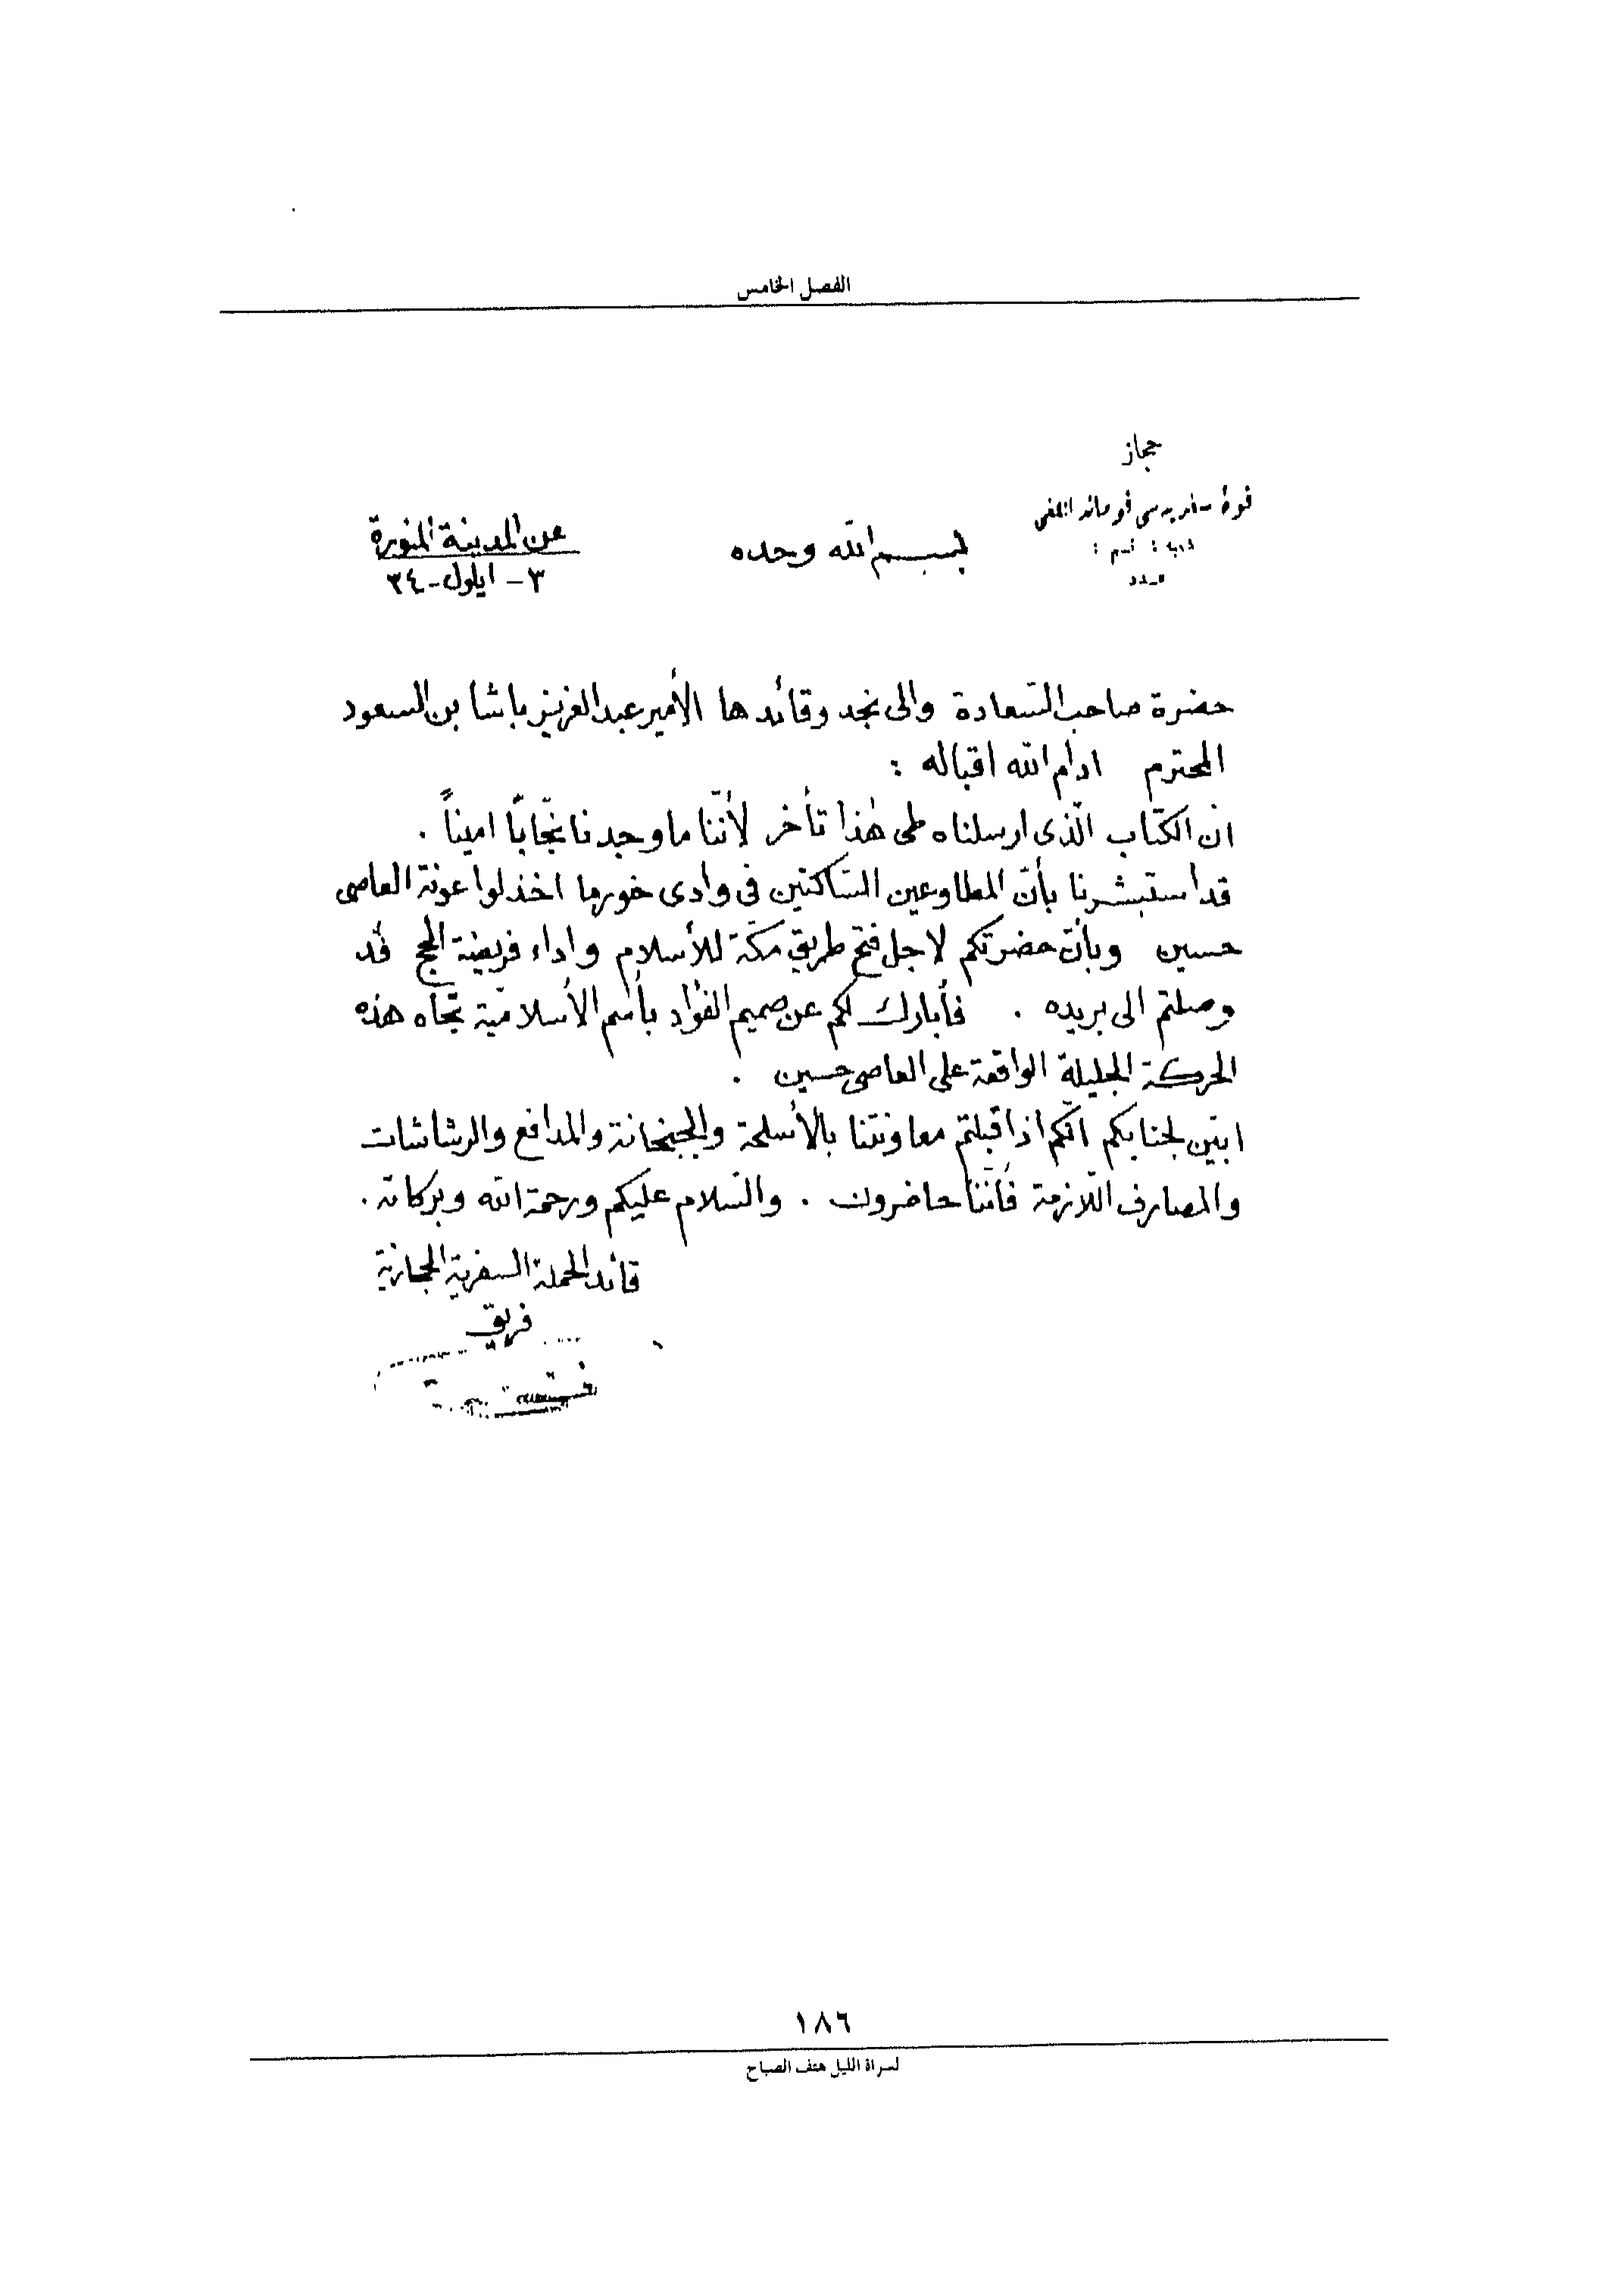 الفصل الخامس
حجاز
قوة سفريه سى قوماندانلغى
قسم :
عدد
عن المدينة المنورة
بسم الله وحده
٣ - ايلول - ٣٤
حضرة صاحب السّعادة والى نجد وقائدها الأمير عبد العزيز باشا بن السعود
المحترم ادام الله اقباله :
ان الكتاب الّذى ارسلناه طى هٰذا تأخر لأنّنا ما وجدنا نجّاباً اميناً .
قد استبشرنا بأنّ المطاوعين السّاكنين فى وادى خورما اخذلوا عونة العاصى
حسين وبأنّ حضرتكم لاجل فتح طريق مكّة للأسلام واداء فريضة الحج قد
وصلتم الى بريده . فأبارك لكم عن صميم الفؤاد بأسم الأسلاميّة تجاه هذه
الحركة الجليلة الواقعة على العاصى حسين .
ابيّن لجنابكم انّكم اذا قبلتم معاونتنا بالأسلحة والجبخانة والمدافع والرشاشات
والمصارف اللّازمة فأنّنا حاضرون . والسّلام عليكم ورحمة الله وبركاته .
قائد الحملة السفرية الحجازية
فريق
١٨٦
لسراة الليل هتف الصباح